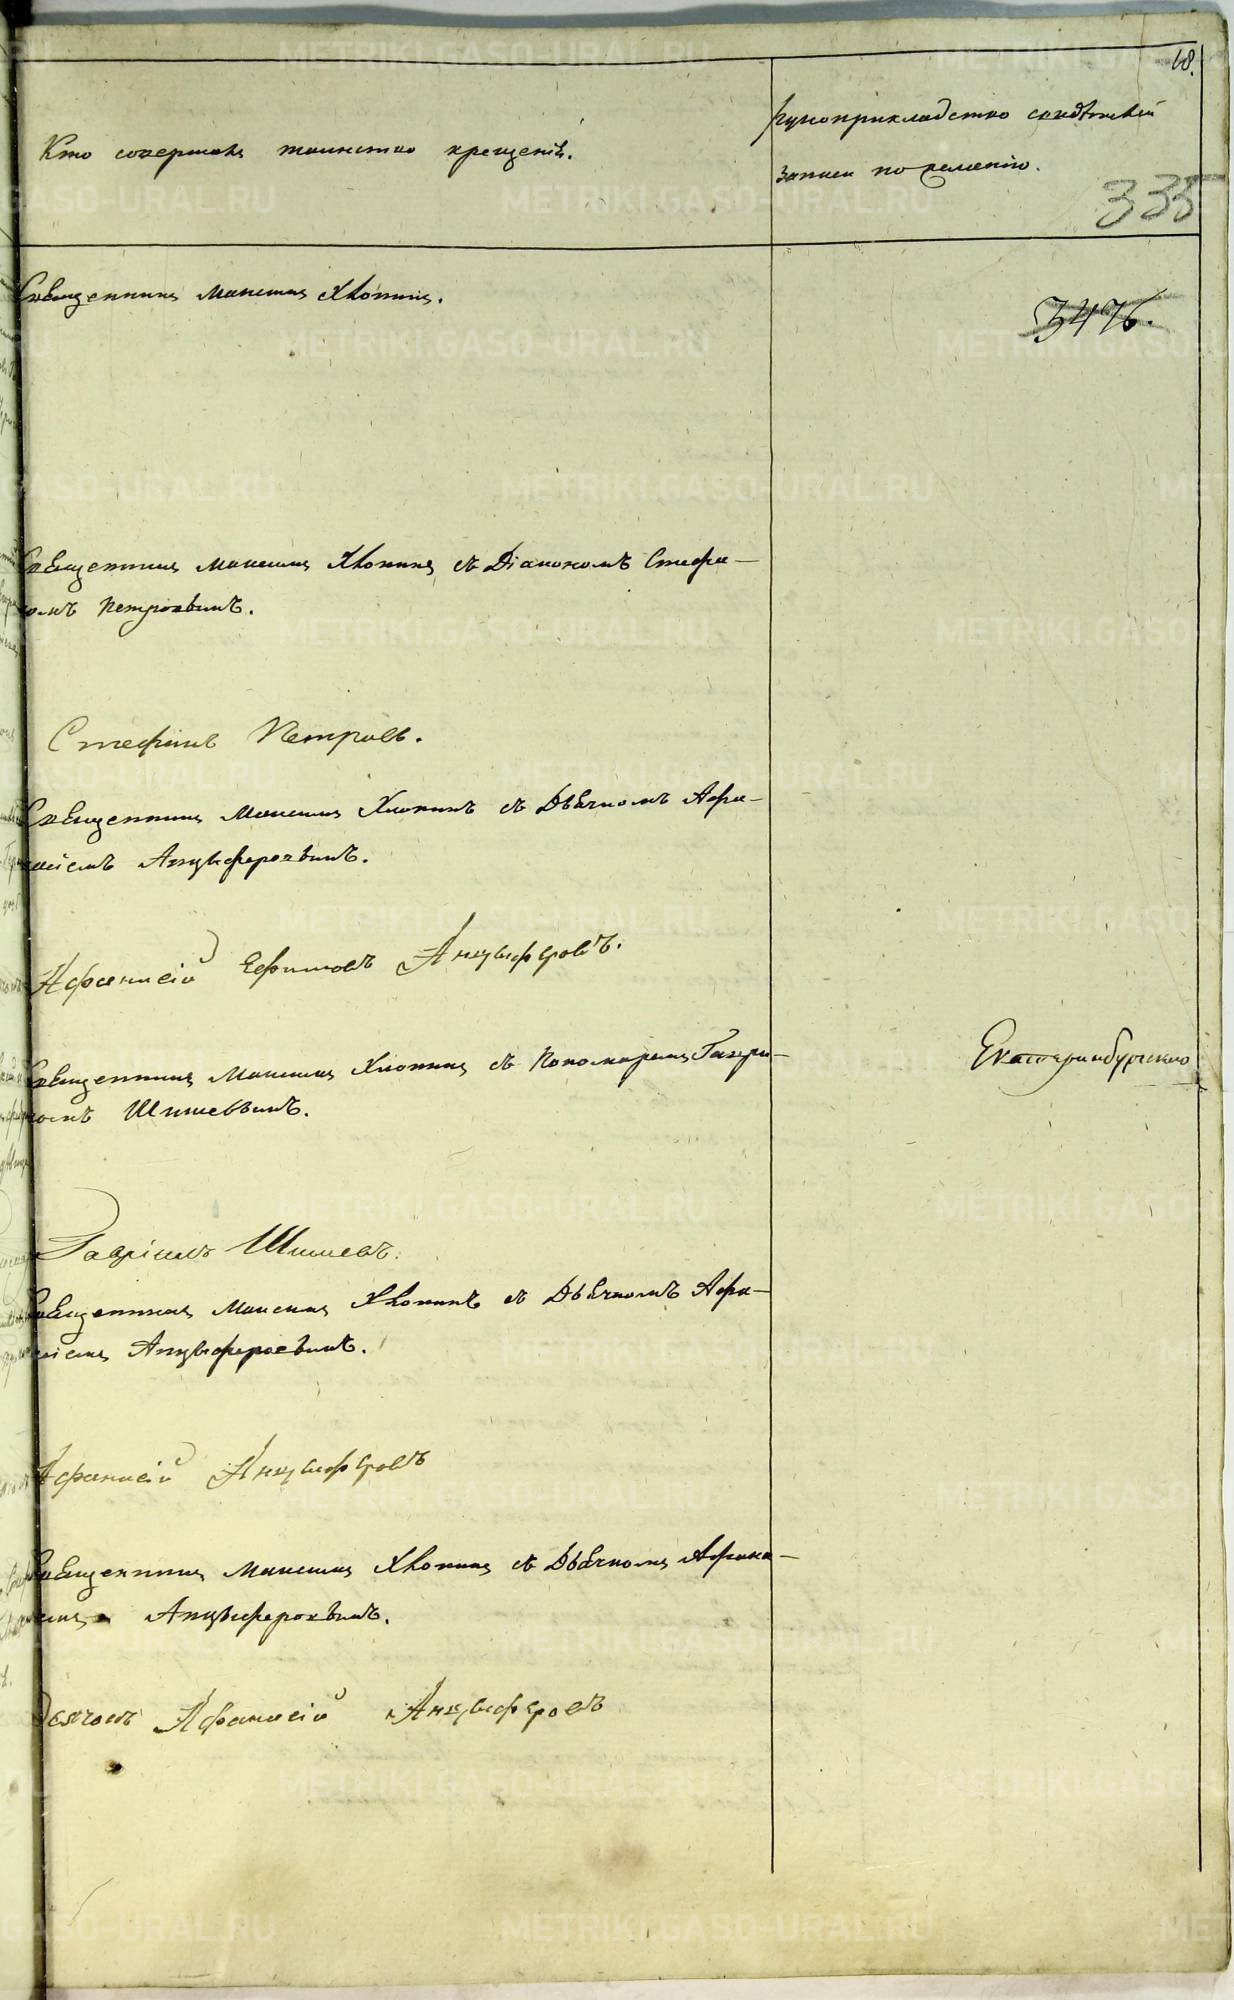 68.
Кто совершалъ таинство крещенія.
Рукоприкладство свидѣтелей
записи по желанію.
335
3476.
Священникъ Максимъ Хлопинъ.
Священникъ Максимъ Хлопинъ съ Діакономъ Стефа—
номъ Петровымъ.
Стефанъ Петровъ.
Священникъ Максимъ Хлопинъ съ Дьячкомъ Афа—
насіемъ Анцыферовымъ.
Афанасій Ефимовъ Анцыферовъ.
Священникъ Максимъ Хлопинъ съ Пономаремъ Гаври—
ломъ Шишевымъ.
Екатеринбургскаго
Гавріилъ Шишевъ.
Священникъ Максимъ Хлопинъ съ Дьячкомъ Афа—
насіемъ Анцыферовымъ.
Афанасій Анцыферовъ
Священникъ Максимъ Хлопинъ съ Дьячкомъ Афана—
сіемъ Анцыферовымъ.
Дьячокъ Афанасій Анцыферовъ
METRIKI.GASO-URAL.RU